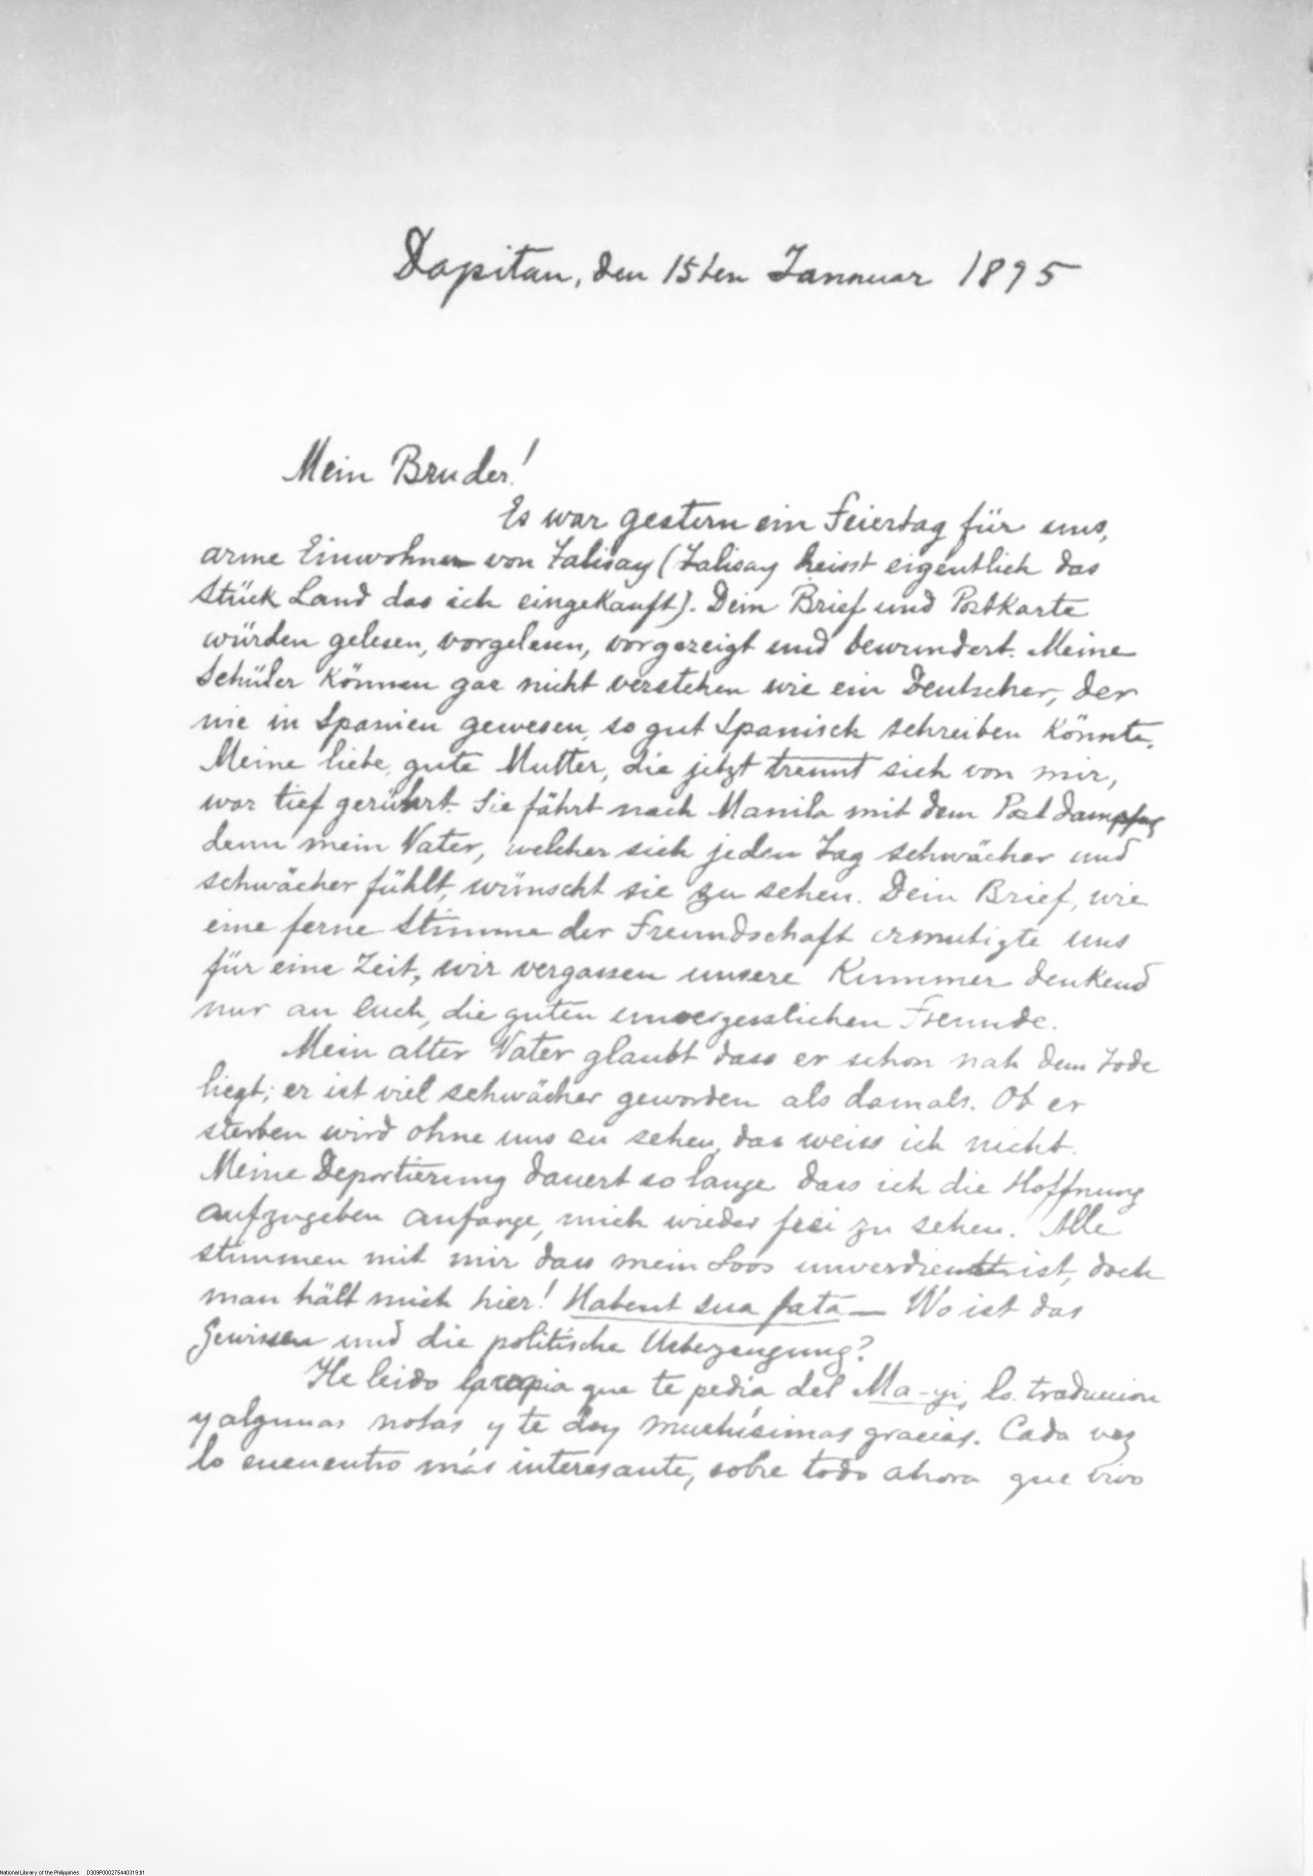 Dapitan, den 15ten Januar 1895
Mein Bruder!
Es war gestern ein Feiertag für uns,
arme Einwohner von Talisay (Talisay heisst eigentlich das
Stück Land das ich eingekauft). Dein Brief und Postkarte
würden gelesen, vorgelesen, vorgezeigt und bewundert. Meine
Schüler können gar nicht verstehen wie ein Deutscher, der
nie in Spanien gewesen, so gut Spanisch schreiben könnte.
Meine liebe, gute Mutter, die jetzt trennt sich von mir,
war tief gerührt. Sie fährt nach Manila mit dem Postdampfer
denn mein Vater, welcher sich jeden Tag schwächer und
schwächer fühlt, wünscht sie zu sehen. Dein Brief, wie
eine ferne Stimme der Freundschaft ermutigte uns
für eine Zeit, wir vergassen unsere Kummer denkend
nur an Euch, die guten unvergesslichen Freunde.
Mein alter Vater glaubt dass er schon nah dem Tode
liegt; er ist viel schwächer geworden als damals. Ob er
sterben wird ohne uns zu sehen, das weiss ich nicht.
Meine Deportierung dauert so lange dass ich die Hoffnung
aufzugeben anfange, mich wieder frei zu sehen. Alle
stimmen mit mir dass mein Loos unverdient ist, doch
man hält mich hier! Habent sua fata — Wo ist das
Gewissen und die politische Ueberzeugung?
He leido la copia que te pedía del Ma-yi, la traduccion
y algunas notas y te doy muchísimas gracias. Cada vez
lo encuentro más interesante, sobre todo ahora que vivo
National Library of the Philippines